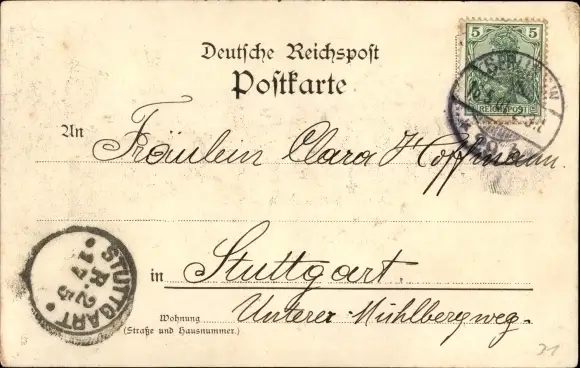 Deutsche Reichspost
Postkarte
5 5
REICHSPOST
An Fräulein Clara Hoffmann.
in Stuttgart.
Wohnung Unterer Mühlbergweg.
(Straße und Hausnummer.)
STUTTGART
R. 25
17
31